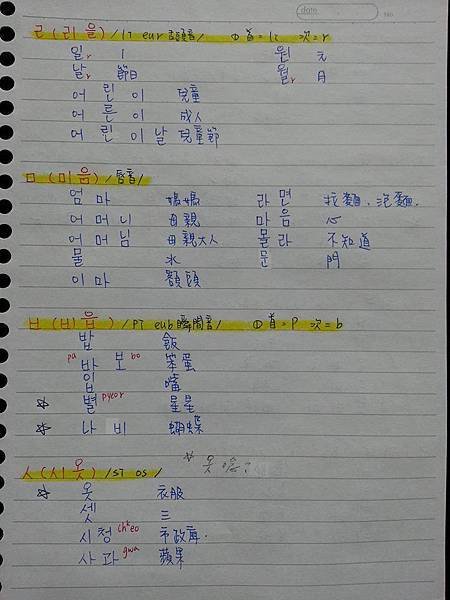 date No
ㄹ(리을)/lT eur 語頭音/ ①首=l 次=r
일r 1 원 元
날r 節日 월r 月
어린이 兒童
어른이 成人
어린이날 兒童節
ㅁ(미음)/唇音/
엄마 媽媽 라면 拉麵、泡麵.
어머니 母親 마음 心
어머님 母親大人 몰라 不知道
물 水 문 門
이마 額頭
ㅂ(비읍)/PT eub 瞬間音/ ①首=P 次=b
밥 飯
pa 바보 bo 笨蛋
입 嘴
☆ 별 pyeor 星星
☆ 나비 蝴蝶
ㅅ(시옷)/sT os/ ☆ 옷
☆ 옷 衣服
셋 三
시청 ch'eo 市政府.
사과 gwa 蘋果